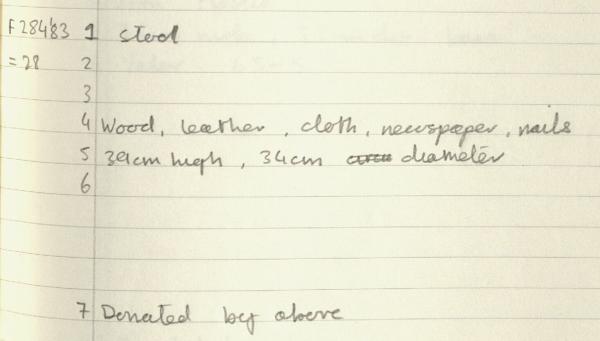 F28483 1 Stool
=28 2
3
4 Wood, leather, cloth, newspaper, nails
5 39cm high, 34cm diameter
6
7 Donated by above